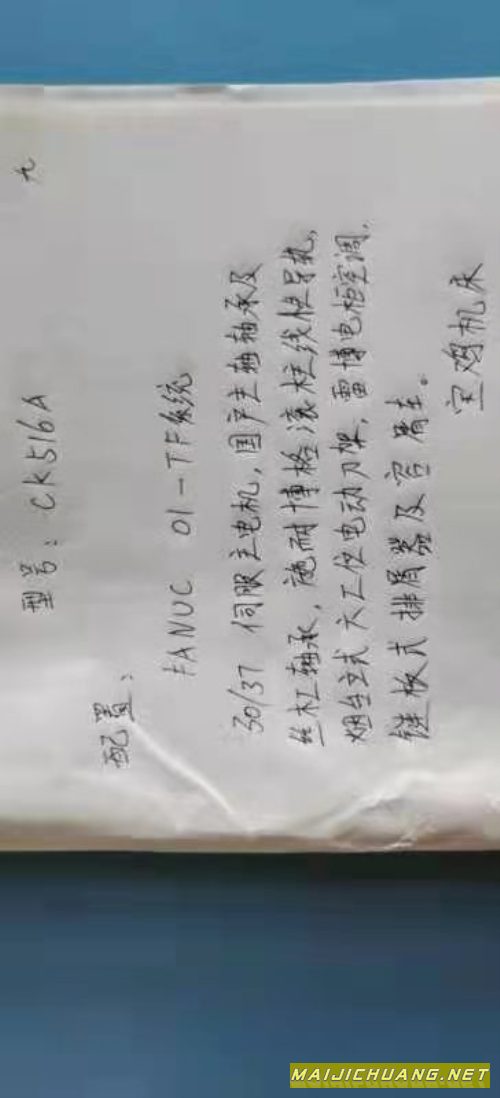 九
型号：CK516A
配置：
FANUC 0I-TF系统
30/37 伺服主电机，国产主轴轴承及
丝杠轴承，施耐博格滚柱线性导轨，
烟台立式六工位电动刀架，雷博电柜空调，
链板式排屑器及容屑车。
宝鸡机床
MAIJICHUANG.NET